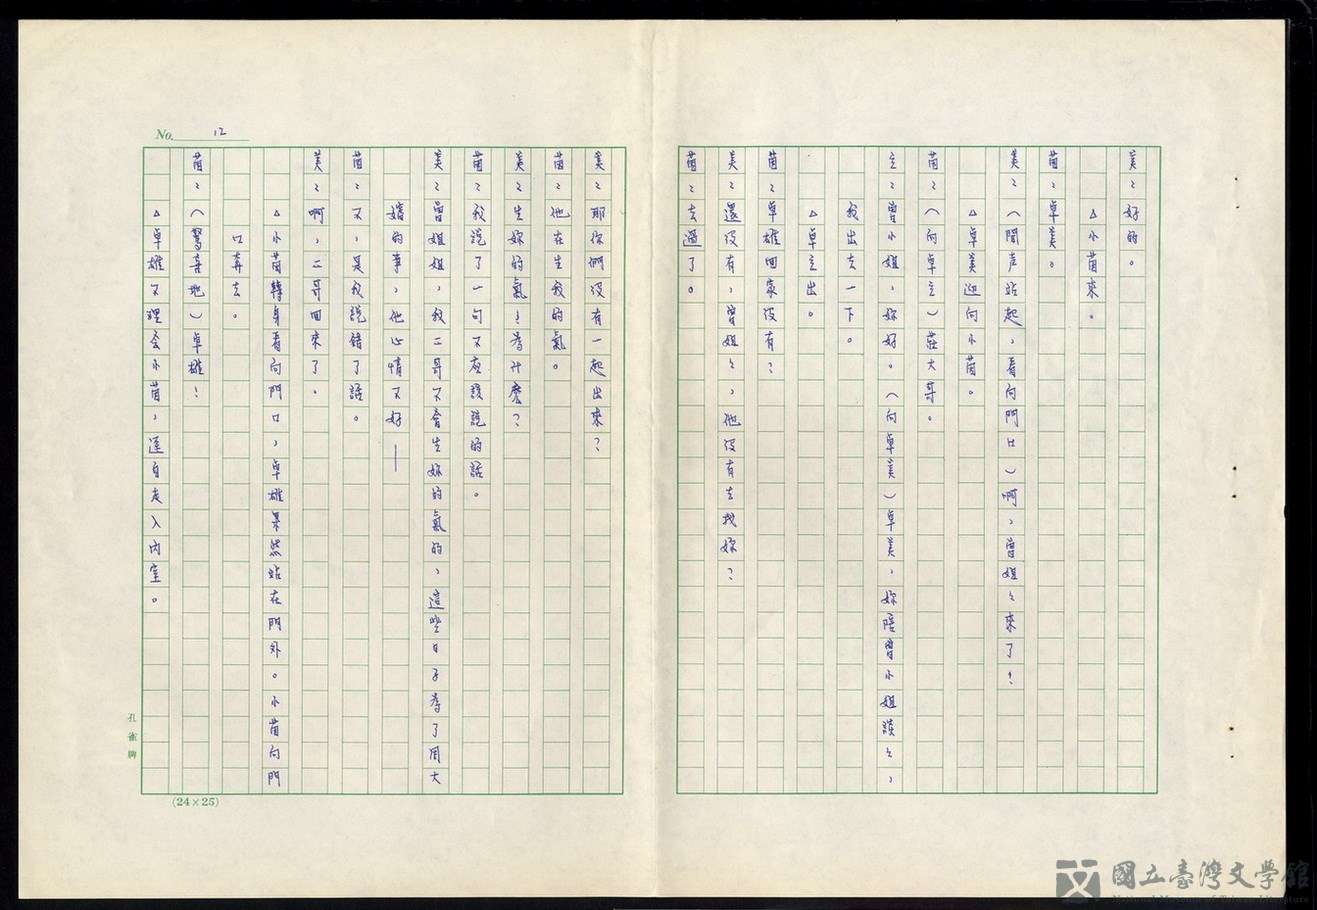 美：好的。
△小茵來。
茵：卓美。
美：（聞声站起，看向門口）啊，曾姐々來了！
△卓美迎向小茵。
茵：（向卓立）莊大哥。
立：曾小姐，妳好。（向卓美）卓美，妳陪曾小姐談々，
我出去一下。
△卓立出。
茵：卓雄回家沒有？
美：還沒有，曾姐々，他沒有去找妳？
茵：去過了。
No. 12
美：耶你們沒有一起出來？
茵：他在生我的氣。
美：生妳的氣！為什麼？
茵：我說了一句不應該說的話。
美：曾姐姐，我二哥不會生妳的氣的，這些日子為了周大
嬸的事，他心情不好——
茵：不，是我說錯了話。
美：啊，二哥回來了。
△小茵轉身看向門口，卓雄果然站在門外。小茵向門
口奔去。
茵：（驚喜地）卓雄！
△卓雄不理会小茵，逕自走入內室。
孔雀牌
(24×25)
國立臺灣文學館
National Museum of Taiwan Literature